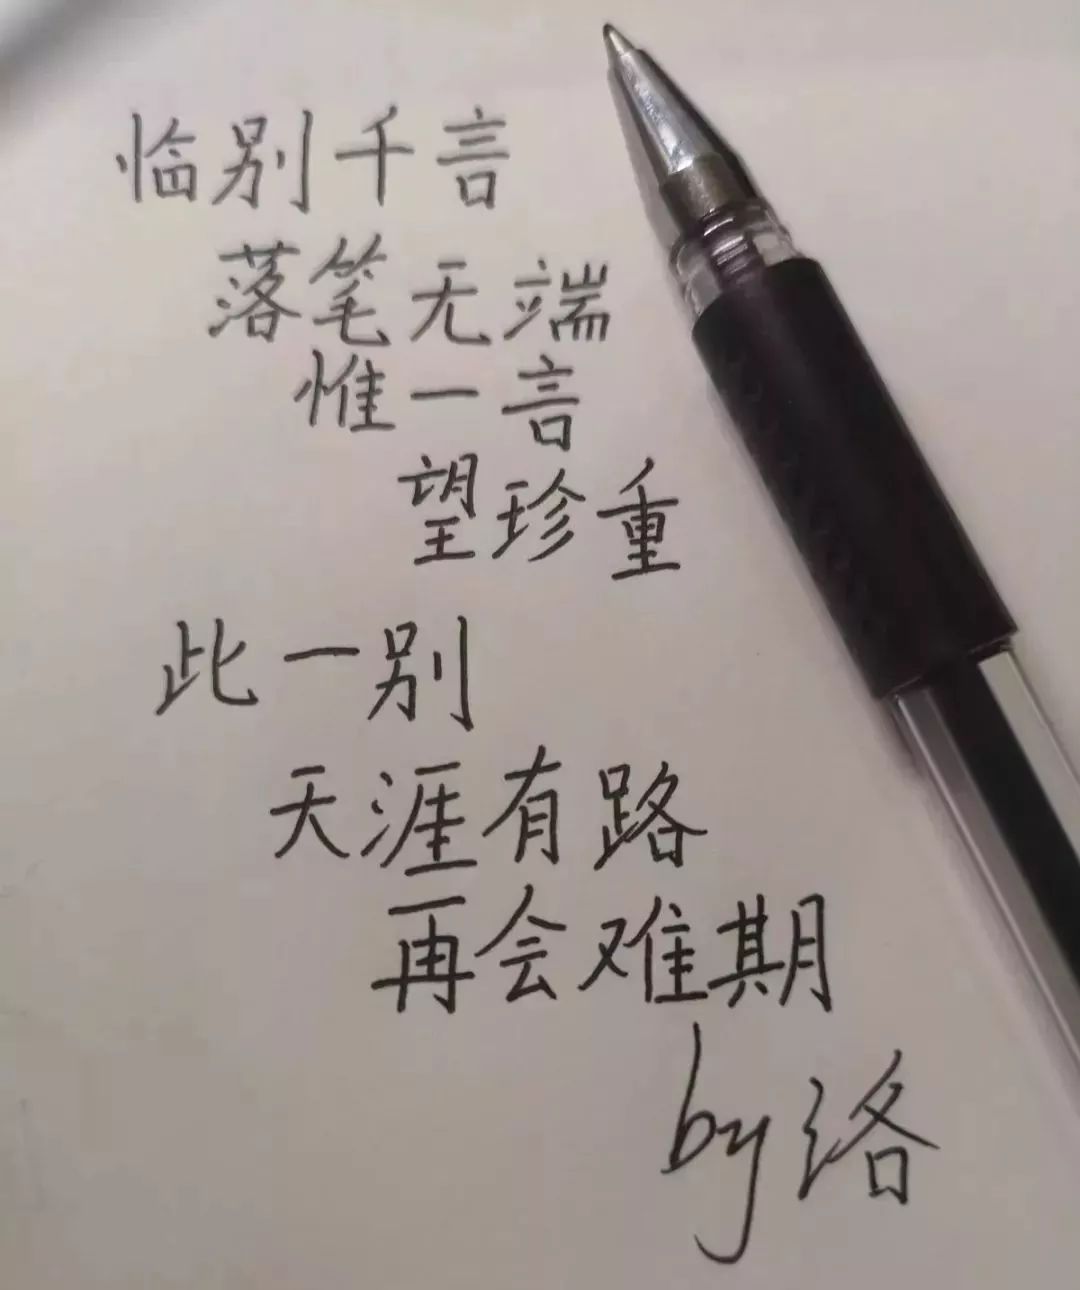 临别千言
落笔无端
惟一言
望珍重
此一别
天涯有路
再会难期
by洛